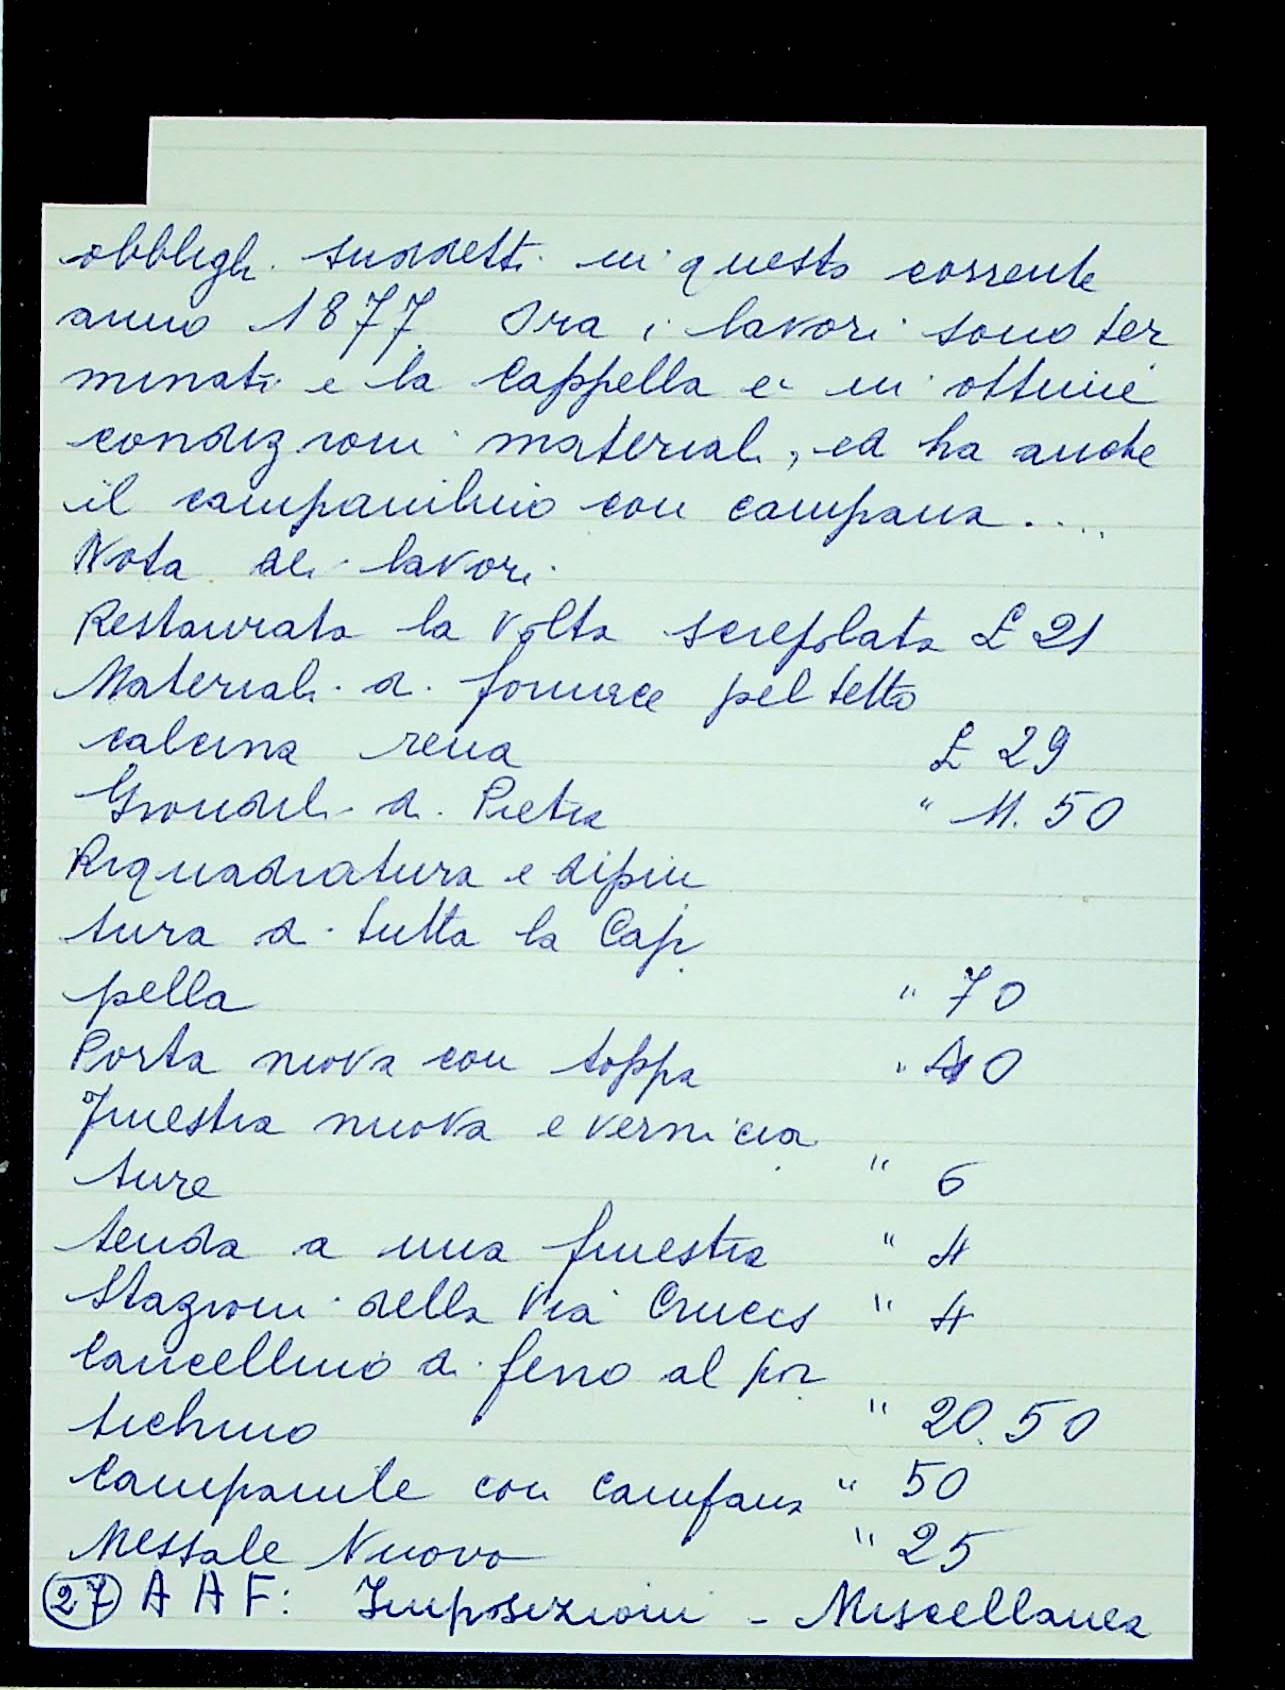 obblighi suddetti in questo corrente
anno 1877. Ora i lavori sono ter
minati e la Cappella è in ottime
condizioni materiali, ed ha anche
il campanilino con campana....
Nota dei lavori
Restaurata la volta screpolata £ 21
Materiali di fornace pel tetto
calcina rena £ 29
Grondali di Pietra " 11. 50
Riquadratura e dipin
tura di tutta la Cap
pella " 70
Porta nuova con toppa " 40
Finestra nuova e vernicia
ture " 6
tenda a una finestra " 4
Stazioni della Via Crucis " 4
Cancellino di ferro al por
tichino " 20.50
Campanile con Campana " 50
Messale Nuovo " 25
27 A A F: Imposizioni - Miscellanea